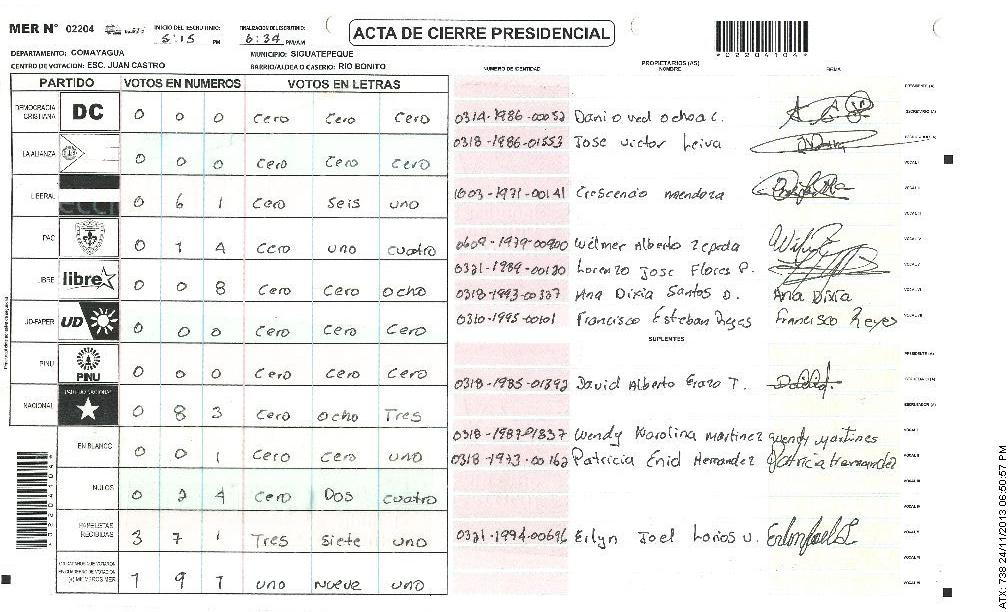 MER N° 02204 INICIO DEL ESCRUTINIO: 5:15 PM FINALIZACION DEL ESCRUTINIO: 6:34 PM/AM
ACTA DE CIERRE PRESIDENCIAL
*02204104*
DEPARTAMENTO: COMAYAGUA MUNICIPIO: SIGUATEPEQUE
CENTRO DE VOTACION: ESC. JUAN CASTRO BARRIO/ALDEA O CASERIO: RIO BONITO
NUMERO DE IDENTIDAD PROPIETARIOS (AS) NOMBRE FIRMA
PARTIDO VOTOS EN NUMEROS VOTOS EN LETRAS
DEMOCRACIA CRISTIANA DC 0 0 0 Cero Cero Cero
LA ALIANZA 0 0 0 Cero Cero Cero
LIBERAL 0 6 1 Cero Seis uno
PAC 0 1 4 Cero uno cuatro
LIBRE libre 0 0 8 Cero Cero ocho
UD-FAPER UD 0 0 0 Cero Cero Cero
PINU PINU 0 0 0 Cero Cero Cero
NACIONAL 0 8 3 Cero ocho Tres
EN BLANCO 0 0 1 Cero Cero uno
NULOS 0 2 4 Cero Dos cuatro
PAPELETAS RECIBIDAS 3 7 1 Tres siete uno
1 9 1 uno nueve uno
PRESIDENTE (A)
0314-1986-00052 SECRETARIO (A)
0318-1986-01553 Jose victor Leiva
VOCAL I
1603-1971-00141 Crescencio mendoza VOCAL II
VOCAL III
0609-1979-00900 Wilmer Alberto Zepeda VOCAL IV
0321-1989-00120 Lorenzo Jose Flores P. VOCAL V
0318-1993-00337 Ana Dixia Santos D. Ana Dixia VOCAL VI
0310-1995-00101 Francisco Esteban Reyes Francisco Reyes VOCAL VII
SUPLENTES
PRESIDENTE (A)
0318-1985-01392 David Alberto Erazo T. SECRETARIO (A)
ESCRUTADOR (A)
0318-1987-01837 Wendy Karolina Martinez Wendy Martines VOCAL I
0318-1973-00162 Patricia Enid Hernandez Patricia Hernandez VOCAL II
VOCAL III
VOCAL IV
0321-1994-00696 Erlyn Joel VOCAL V
VOCAL VI
VOCAL VII
*02204104*
ATX: 738 24/11/2013 06:50:57 PM